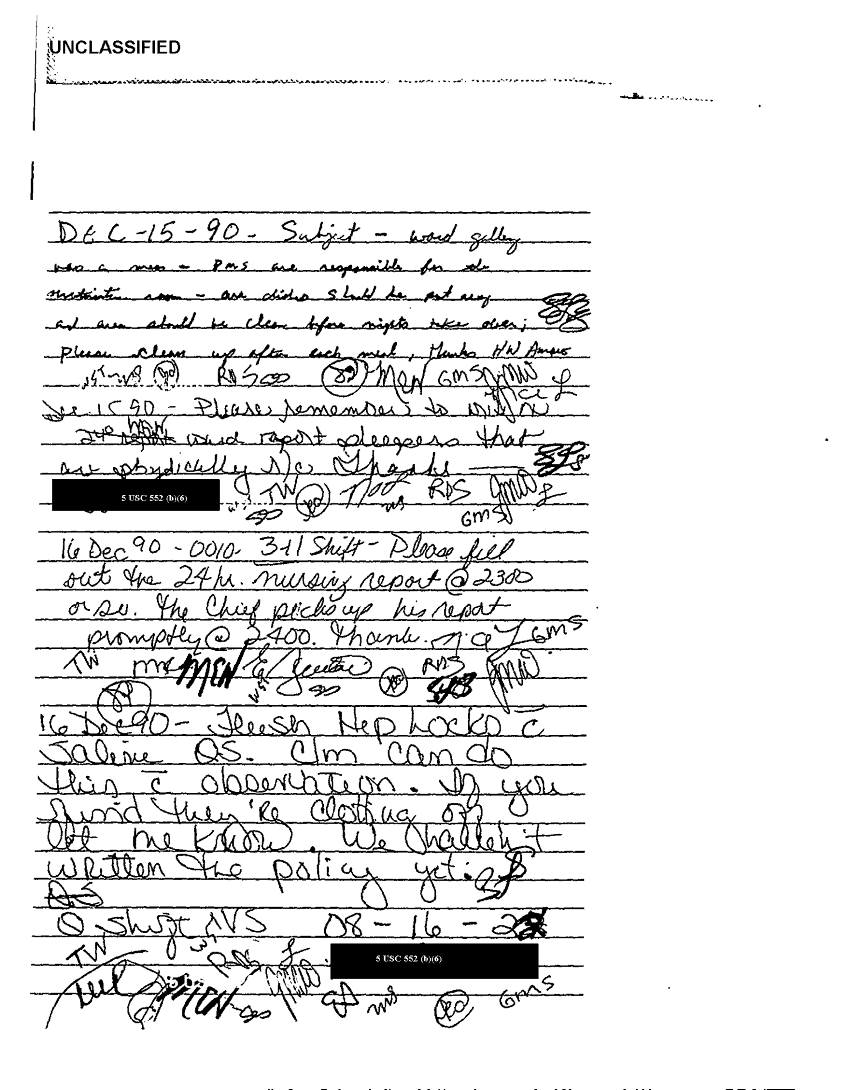 UNCLASSIFIED
DEC-15-90 - Subject - ward galley
was a mess - PMS are responsible for the
room - are dishes should be put away
and area should be clean before nights take over;
please clean up after each meal, Thanks HN
RDS MEN GMS JMW
Dec 15 90 - Please remember to
24 hr ward report sleepers that
are physically s/c. Thanks
5 USC 552 (b)(6) TW RDS JMW
ms GMS
16 Dec 90 - 0010 3-11 Shift - Please fill
out the 24 hr. nursing report @ 2300
or so. The Chief picks up his report
promptly @ 2400. Thanks. GMS
TW ms MEN RDS JMW
16 Dec 90 - Flush Hep Locks c̄
Saline QS. C/m can do
this c̄ observation. If you
find they're clotting off
let me know. We haven't
written the policy yet.
Q shift NS 08-16-2
TW RDS 5 USC 552 (b)(6)
MEN JMW ms GMS